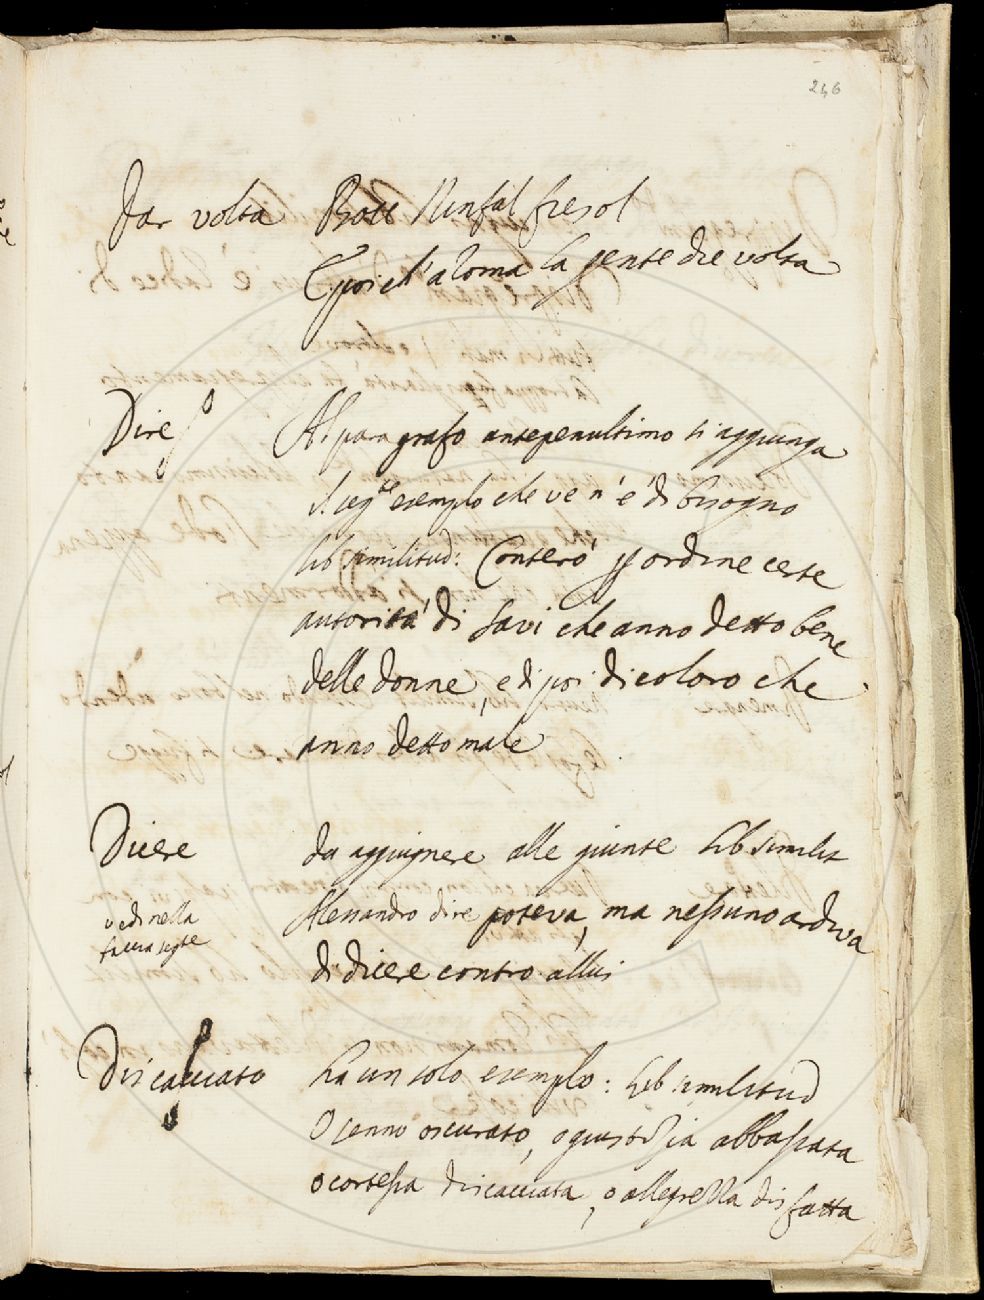 246
Dar volta Bocc Ninfal fiesol
E poi ch'a Roma la gente die volta
Dire Al paragrafo antepenultimo si aggiunga
il seg.te esemplo che ve n'e' di bisogno
Lib similitud: Conterò p ordine certe
autorità di savi che anno detto bene
delle donne, e di poi di coloro che
anno detto male
Dicere da aggiugnere alle giunte Lib similit
vedi nella Alessandro dire poteva, ma nessuno ardiva
faccia segte di dicere contro allui
Discacciato Ha un solo esemplo: Lib similitud
O senno oscurato, o giustizia abbassata
o cortesia discacciata, o allegrezza disfatta